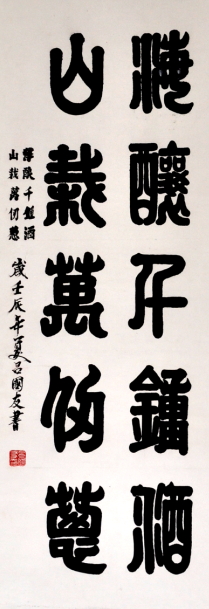 海釀千鍾酒
山栽萬仞葱
千鍾酒
山栽萬仞葱
歲壬辰年夏吕國友書